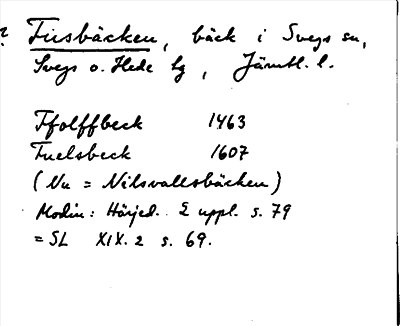 ? Fusbäcken, bäck i Svegs sn,
Svegs o. Hede tg, Jämtl. l.
Ffolffbeck 1463
Fuelsbeck 1607
(Nu = Nilsvallsbäcken)
Modin: Härjed. 2 uppl. s. 79
= SL XIX. 2 s. 69.